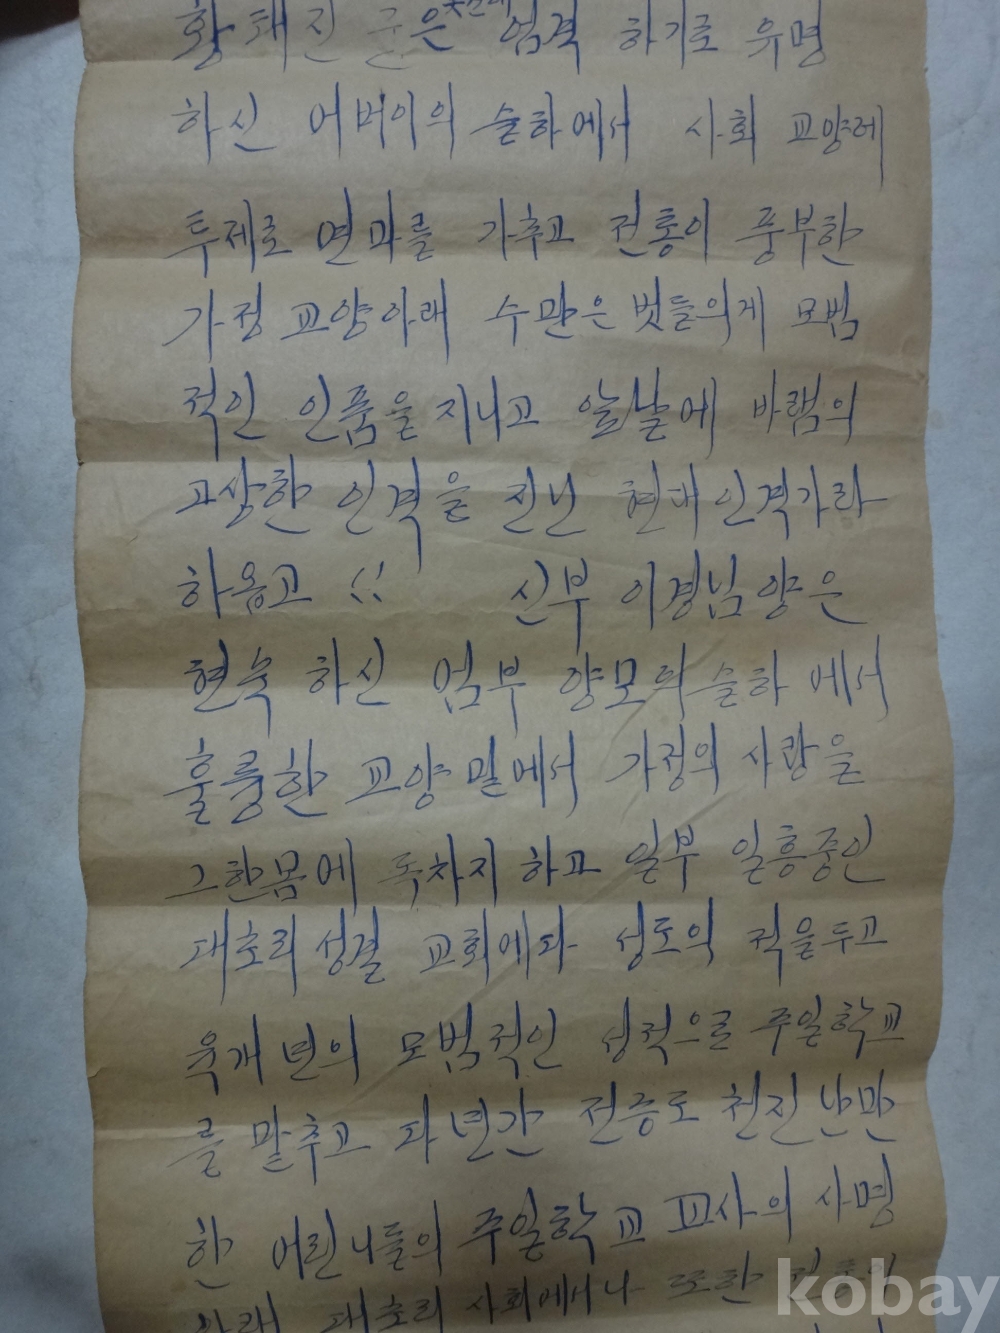 황태진 군은 엄격 하기로 유명
하신 어버이의 슬하에서 사회 교양레
투제로 연마를 가추고 전통이 풍부한
가정 교양아래 수많은 벗들의게 모범
적인 인품을 지니고 앞날에 바램의
고상한 인격을 진닌 현대인격가라
하옵고 신부 이경님양은
현숙 하신 엄부 양모의 슬하 에서
훌륭한 교양밑에서 가정의 사랑을
그한몸에 독차지 하고 일부 일흥중인
대초리성결 교회에다 성도의 적을두고
육개년의 모범적인 성적으로 주일학교
를 맡추고 다년간 전증도 천진난만
한 어린니들의 주일학교 교사의 사명
아래 대초리 사회에서나 또한
kobay